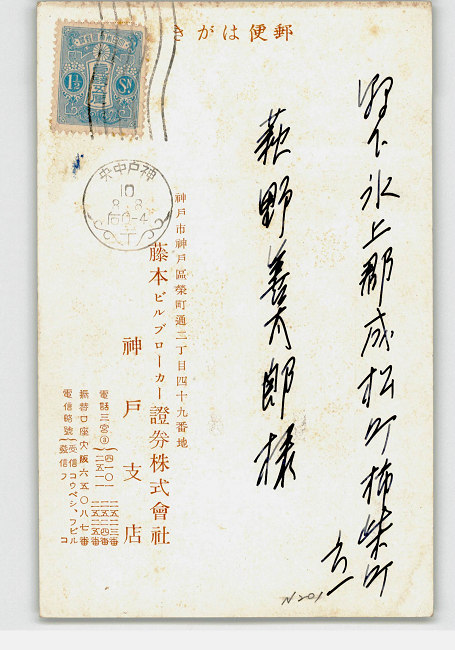 郵便はがき
県下氷上郡成松町柿柴町
萩野善太郎様
神戸市神戸區榮町通二丁目四十九番地
藤本ビルブローカー證券株式會社
神戸支店
電話三宮③
振替口座大阪六五〇八七番
電信略號
神戸中央
10
8.8
1½
Sn
N201